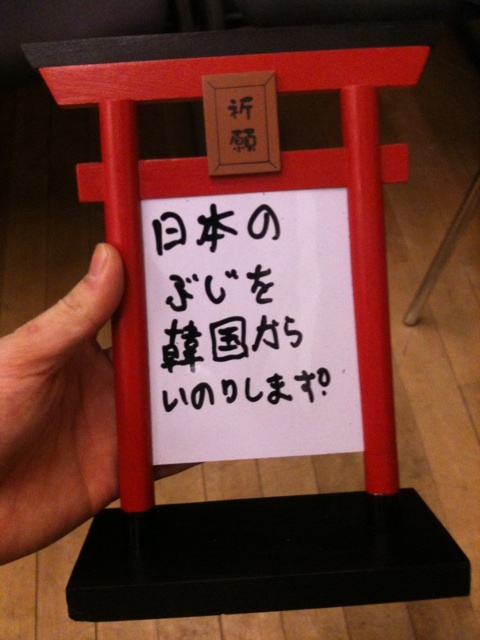 祈
願
日本の
ぶじを
韓国から
いのりします。